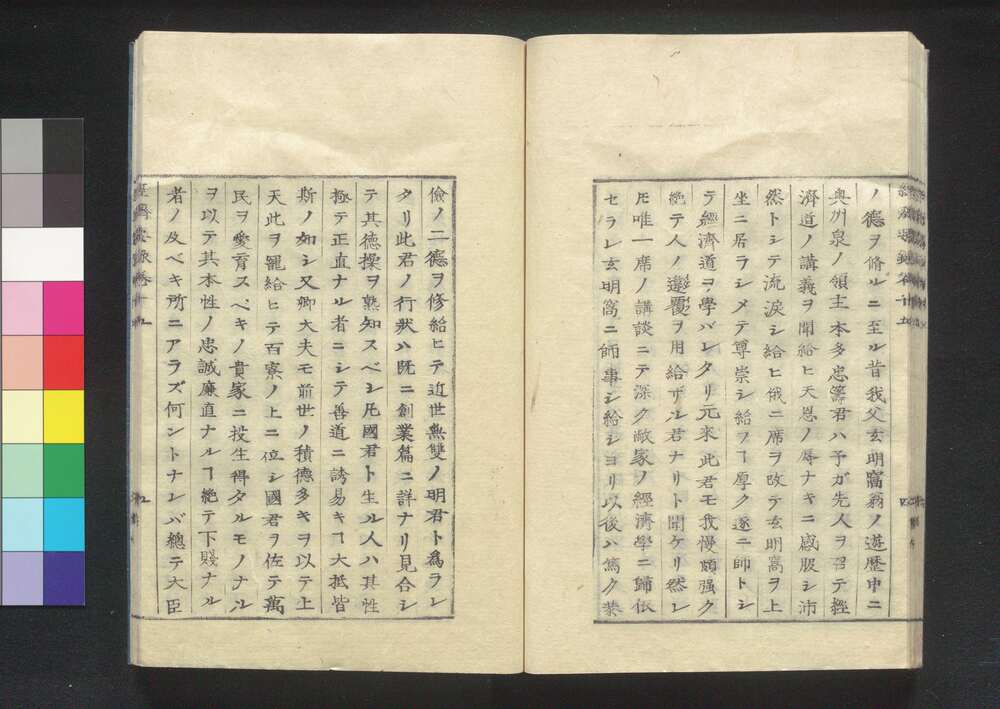 ノ德ヲ脩ルニ至ル昔我父玄明窩翁ノ遊歷中ニ
奥州泉ノ領主本多忠籌君ハ予ガ先人ヲ召テ經
濟道ノ講義ヲ聞給ヒ天恩ノ辱ナキニ感服シ沛
然トシテ流淚シ給ヒ俄ニ席ヲ改テ玄明窩ヲ上
坐ニ居ラシメテ尊崇シ給フヿ厚ク遂ニ師トシ
テ經濟道ヲ學バレタリ元來此君モ我慢頑强ク
絕テ人ノ ヲ用給ザル君ナリト聞ケリ然レ
𪜈唯一席ノ講談ニテ深ク敝家ノ經濟學ニ歸依
セラレ玄明窩ニ師事シ給シヨリ以後ハ篤ク恭
儉ノ二德ヲ修給ヒテ近世無雙ノ明君ト爲ラレ
タリ此君ノ行狀ハ既ニ創業篇ニ詳ナリ見合シ
テ其德操ヲ熟知スベシ凡國君ト生ル人ハ其性
極テ正直ナル者ニシテ善道ニ誘易キヿ大抵皆
斯ノ如シ又卿大夫モ前世ノ積德多キヲ以テ上
天此ヲ寵給ヒテ百寮ノ上ニ位シ國君ヲ佐テ萬
民ヲ愛育スベキノ貴家ニ投生得タルモノナル
ヲ以テ其本性ノ忠誠廉直ナルヿ絕テ下賤ナル
者ノ及ベキ所ニアラズ何ントナレバ總テ大臣